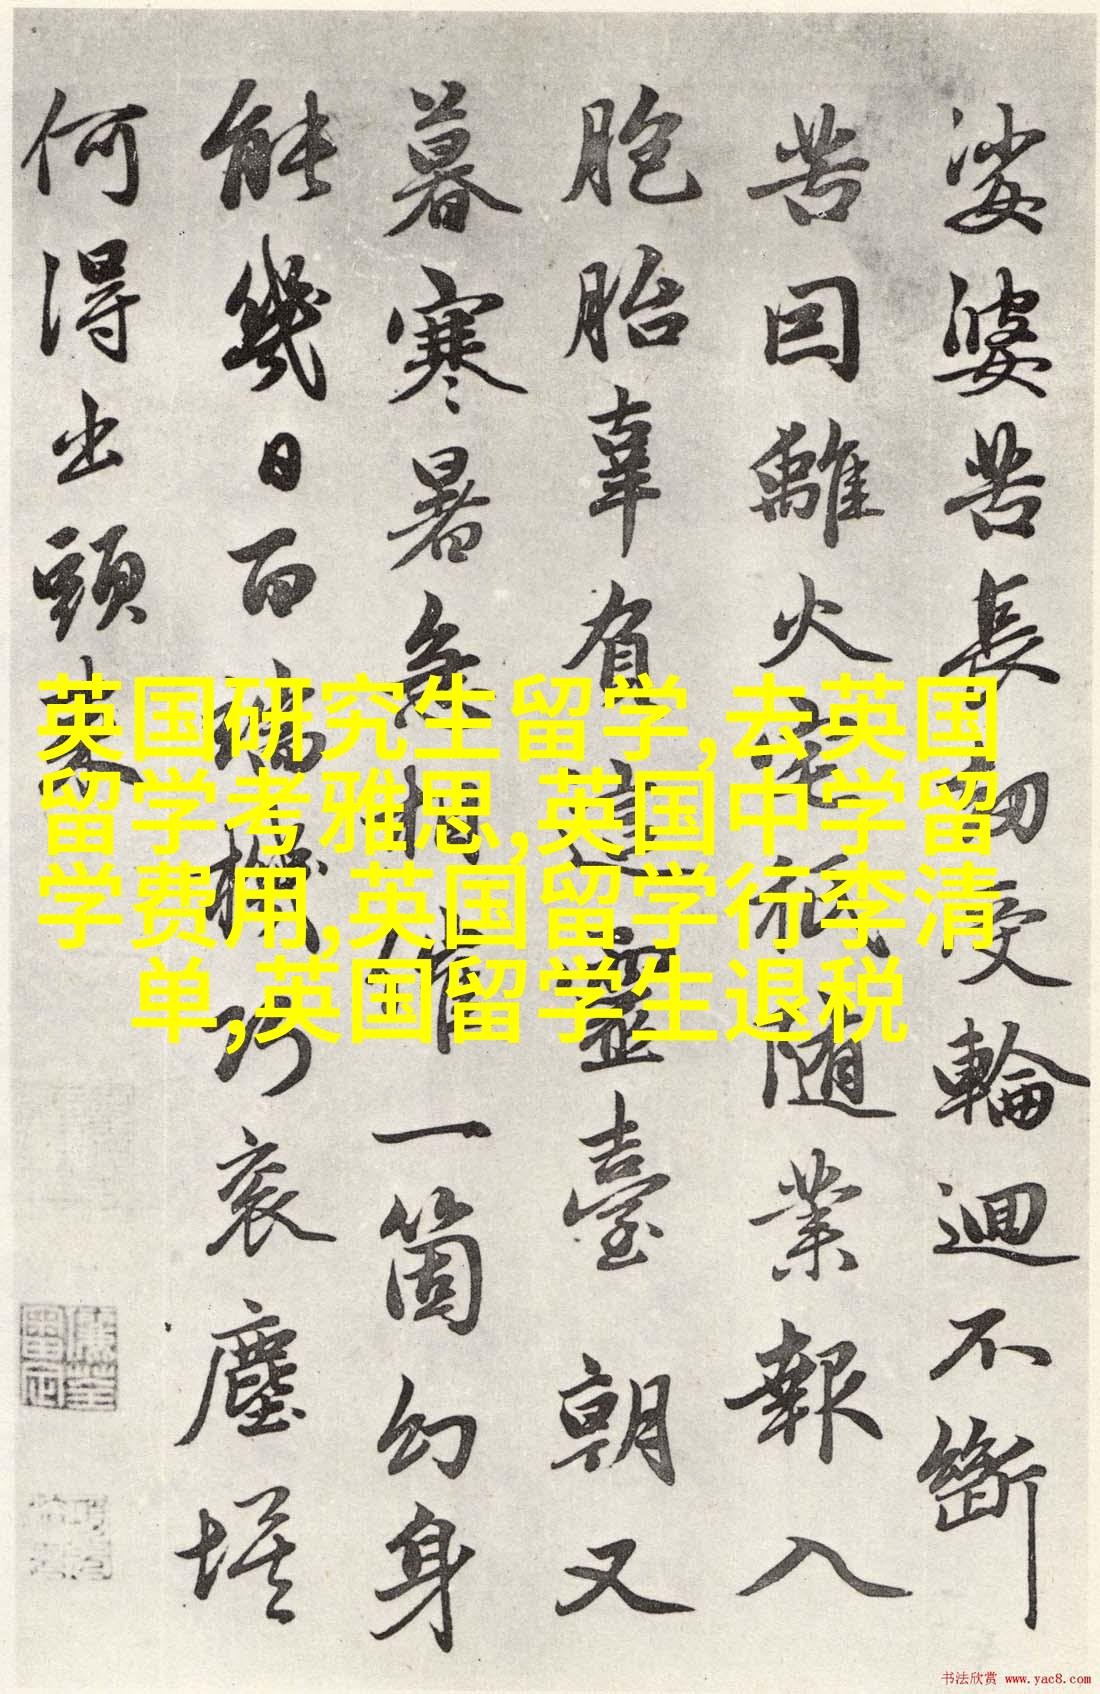 娑婆苦長劫受輪迴不斷
苦因離火宅祇随業報入
胞胎辜負這靈臺朝又
暮寒暑急相催一箇幻身
能幾日百端機巧衮塵埃
何得出頭来
英国研究生留学,去英国
留学考雅思,英国中学留
学费用,英国留学行李清
单,英国留学生退税
书法欣赏 www.yac8.com